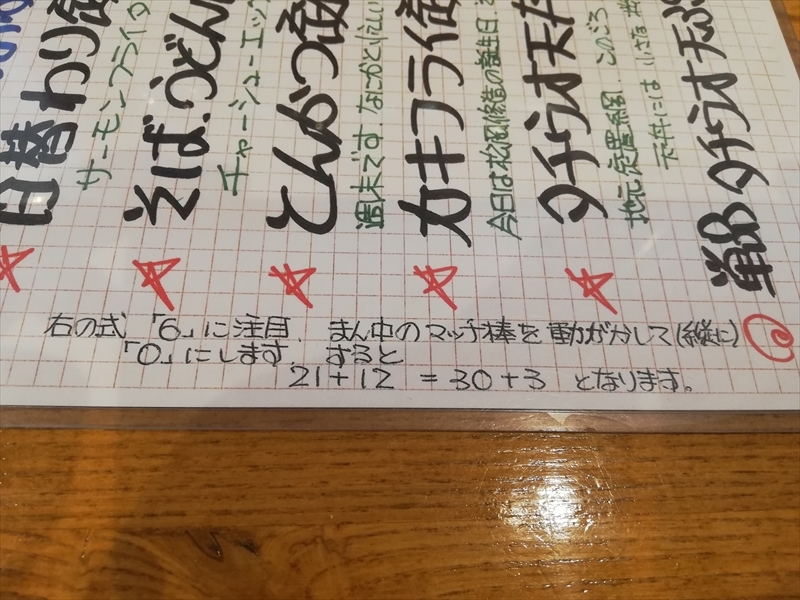 日替わり定
サーモンフライの
そば.うどん
チャーシューエッグ
とんかつ定
週末です.なにかと忙しい
カキフライ定
今日は松岡修造の誕生日.
タチウオ天
地元定置網.このごろ
天丼には 小さな
単品タチウオ天ぷ
右の式「6」に注目. まん中のマッチ棒を動がかして(縦に)
「0」にします. すると
21+12 = 30+3 となります。